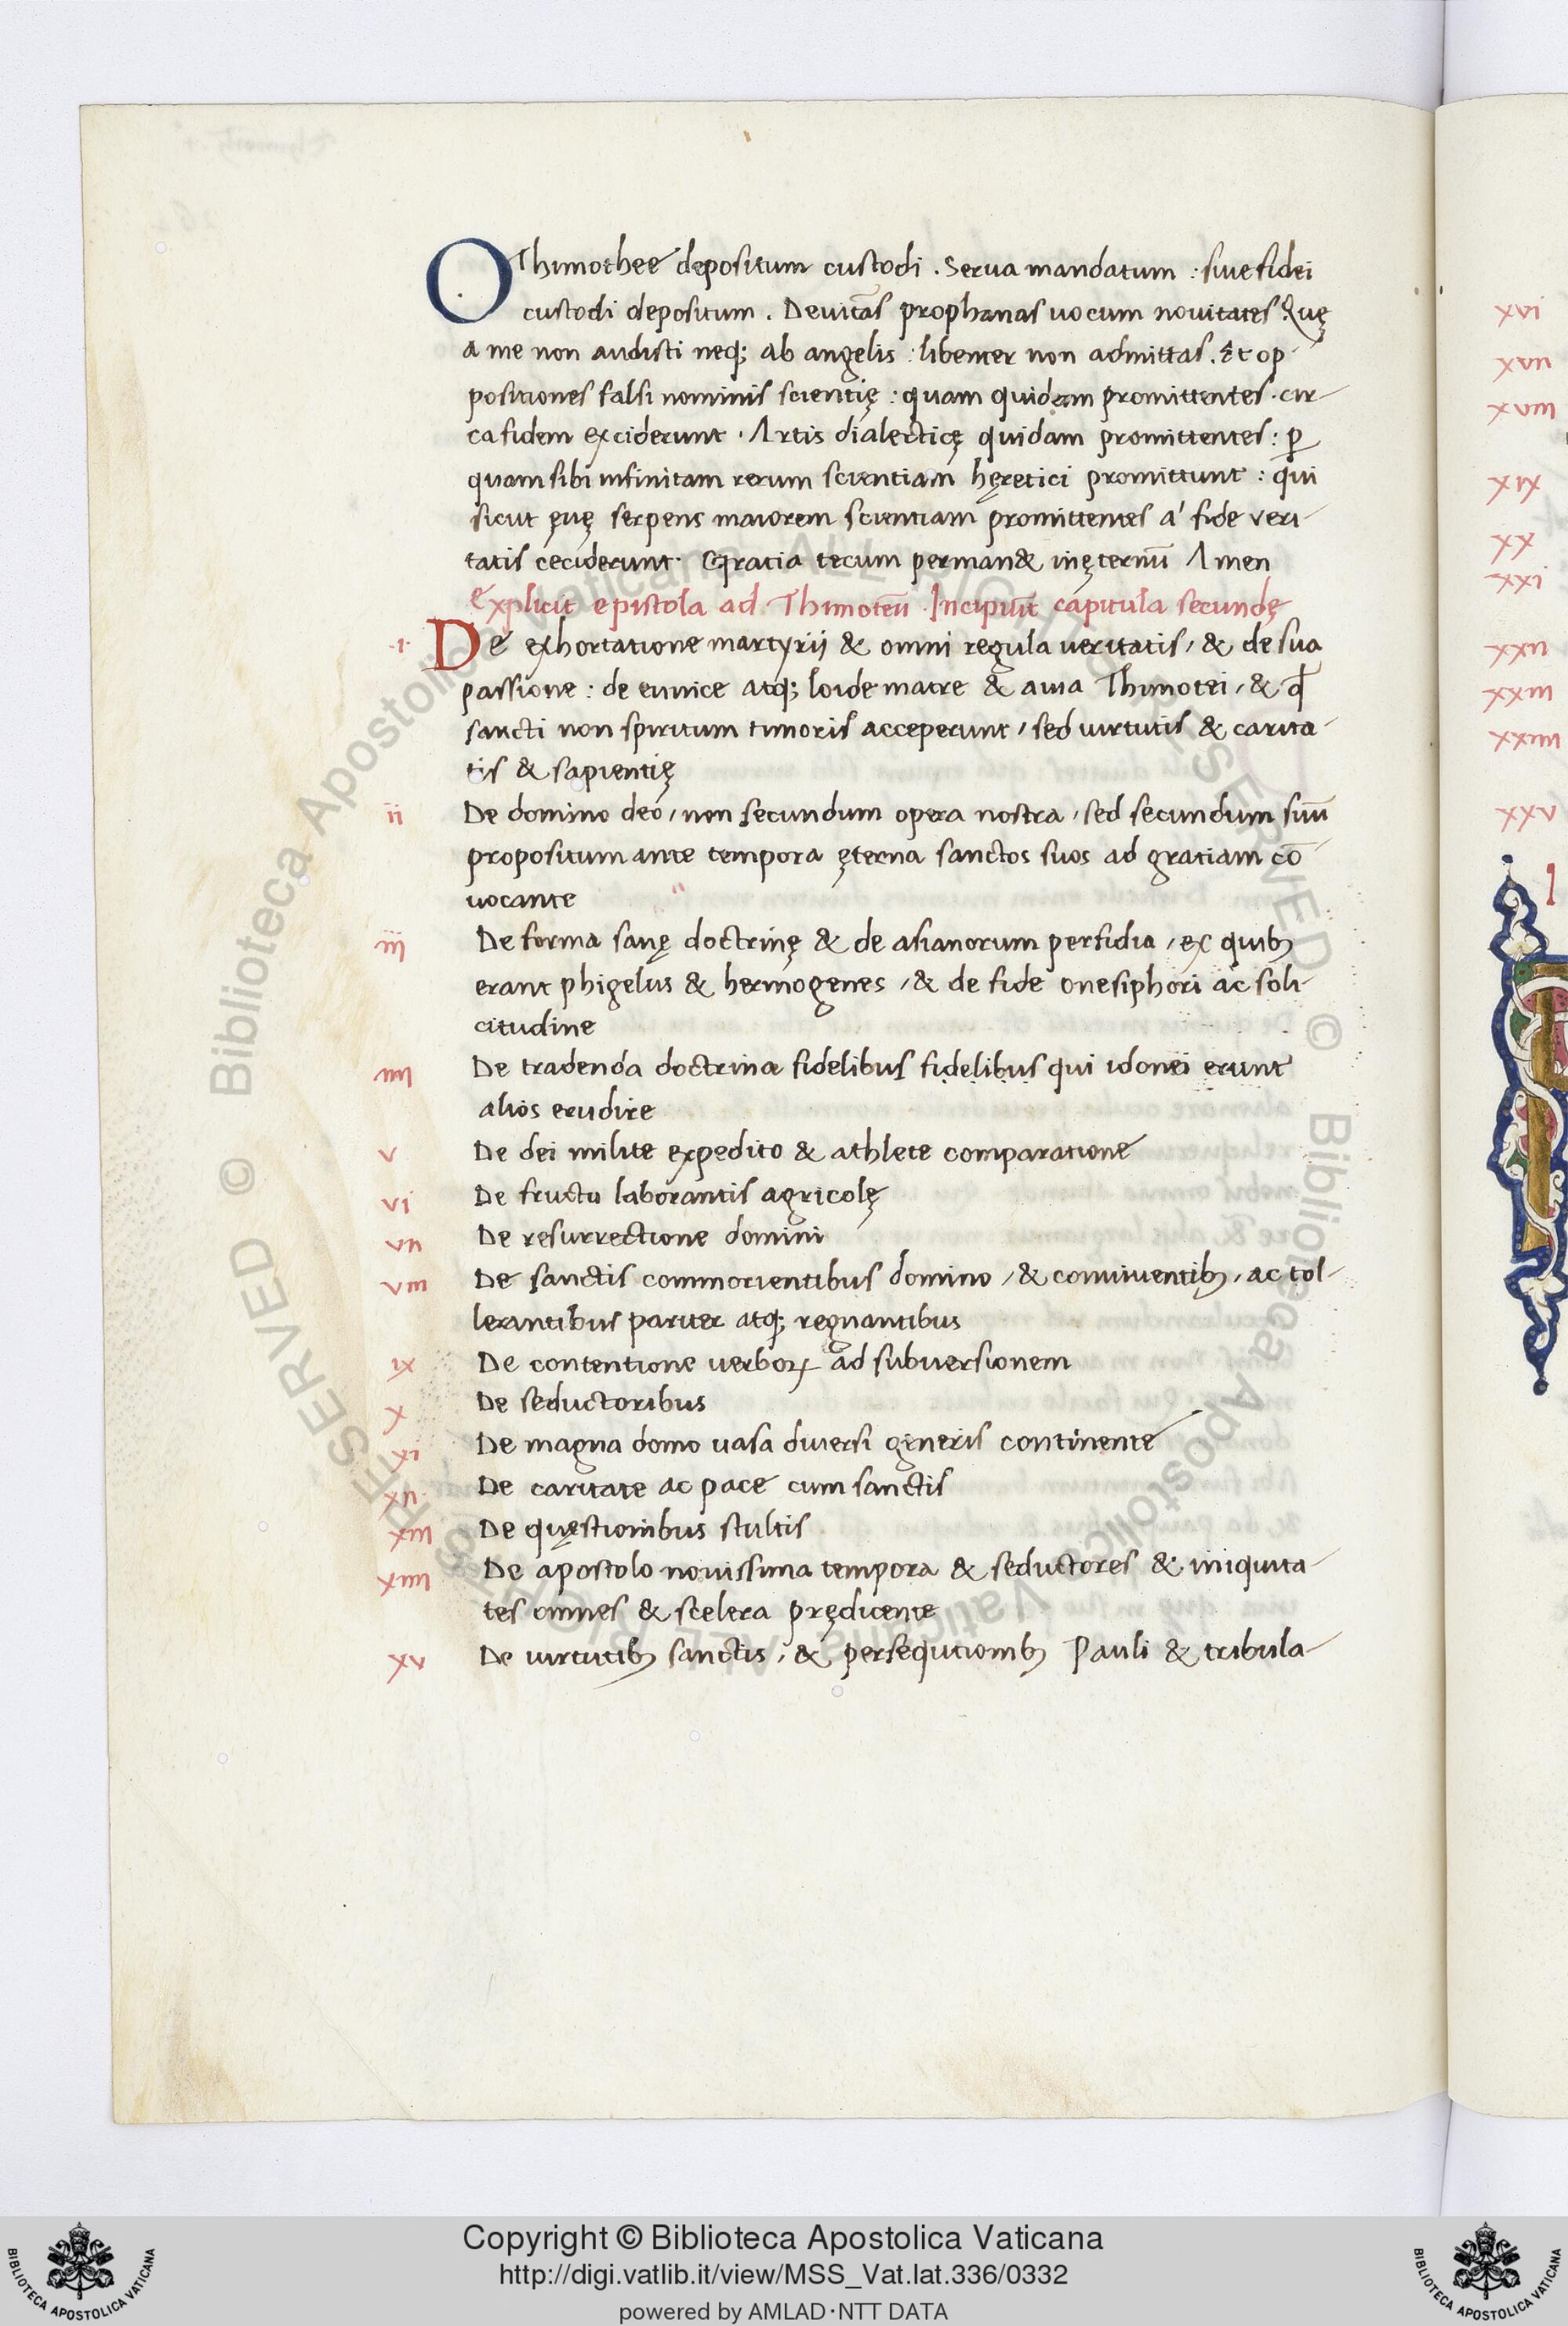 O Thimothee depositum custodi . Serua mandatum : siue fidei
custodi depositum . Deuitās prophanas uocum nouitates . Quę
a me non audisti neq; ab angelis : libenter non admittas . Et op-
positiones falsi nominis scientię : quam quidam promittentes . cir-
ca fidem exciderunt . Artis dialecticę quidam promittentes : ꝑ
quam sibi infinitam rerum scientiam hęretici promittunt : qui
sicut ęuę serpens maiorem scientiam promittentes a' fide veri-
tatis ceciderunt . Gratia tecum perman& in ęternū Amen
Explicit epistola ad Thimoteū . Incipiūt capitula secundę
.1. De exhortatione martyrij & omni regula ueritatis, & de sua
passione : de eunice atq; loide matre & auia Thimotei, & ꝙ
sancti non spiritum timoris acceperunt, sed uirtutis & carita-
tis & sapientię
ii De domino deo, non secundum opera nostra, sed secundum suū
propositum ante tempora ęterna sanctos suos ad gratiam cō-
uocante
iij De forma sanę doctrinę & de asianorum perfidia, ex quibꝫ
erant phigelus & hermogenes, & de fide onesiphori ac soli-
citudine
iiii De tradenda doctrina fidelibus fidelibus qui idonei erunt
alios erudire
v De dei milite expedito & athlete comparatione
vi De fructu laborantis agricolę
vii De resurrectione domini
viii De sanctis commorientibus domino, & conuiuentibꝫ, ac tol-
lerantibus pariter atq; regnantibus
ix De contentione uerboꝝ ad subuersionem
x De seductoribus
xi De magna domo uasa diuersi generis continente
xii De caritate ac pace cum sanctis
xiii De quęstionibus stultis
xiiii De apostolo nouissima tempora & seductores & iniquita-
tes omnes & scelera prędicente
xv De uirtutibꝫ sanctis, & persequtionibꝫ Pauli & tribula-
xvi
xvii
xviii
xix
xx
xxi
xxii
xxiii
xxiiii
xxv
Copyright © Biblioteca Apostolica Vaticana
http://digi.vatlib.it/view/MSS_Vat.lat.336/0332
powered by AMLAD·NTT DATA
BIBLIOTECA APOSTOLICA VATICANA
BIBLIOTECA APOSTOLICA VATICANA